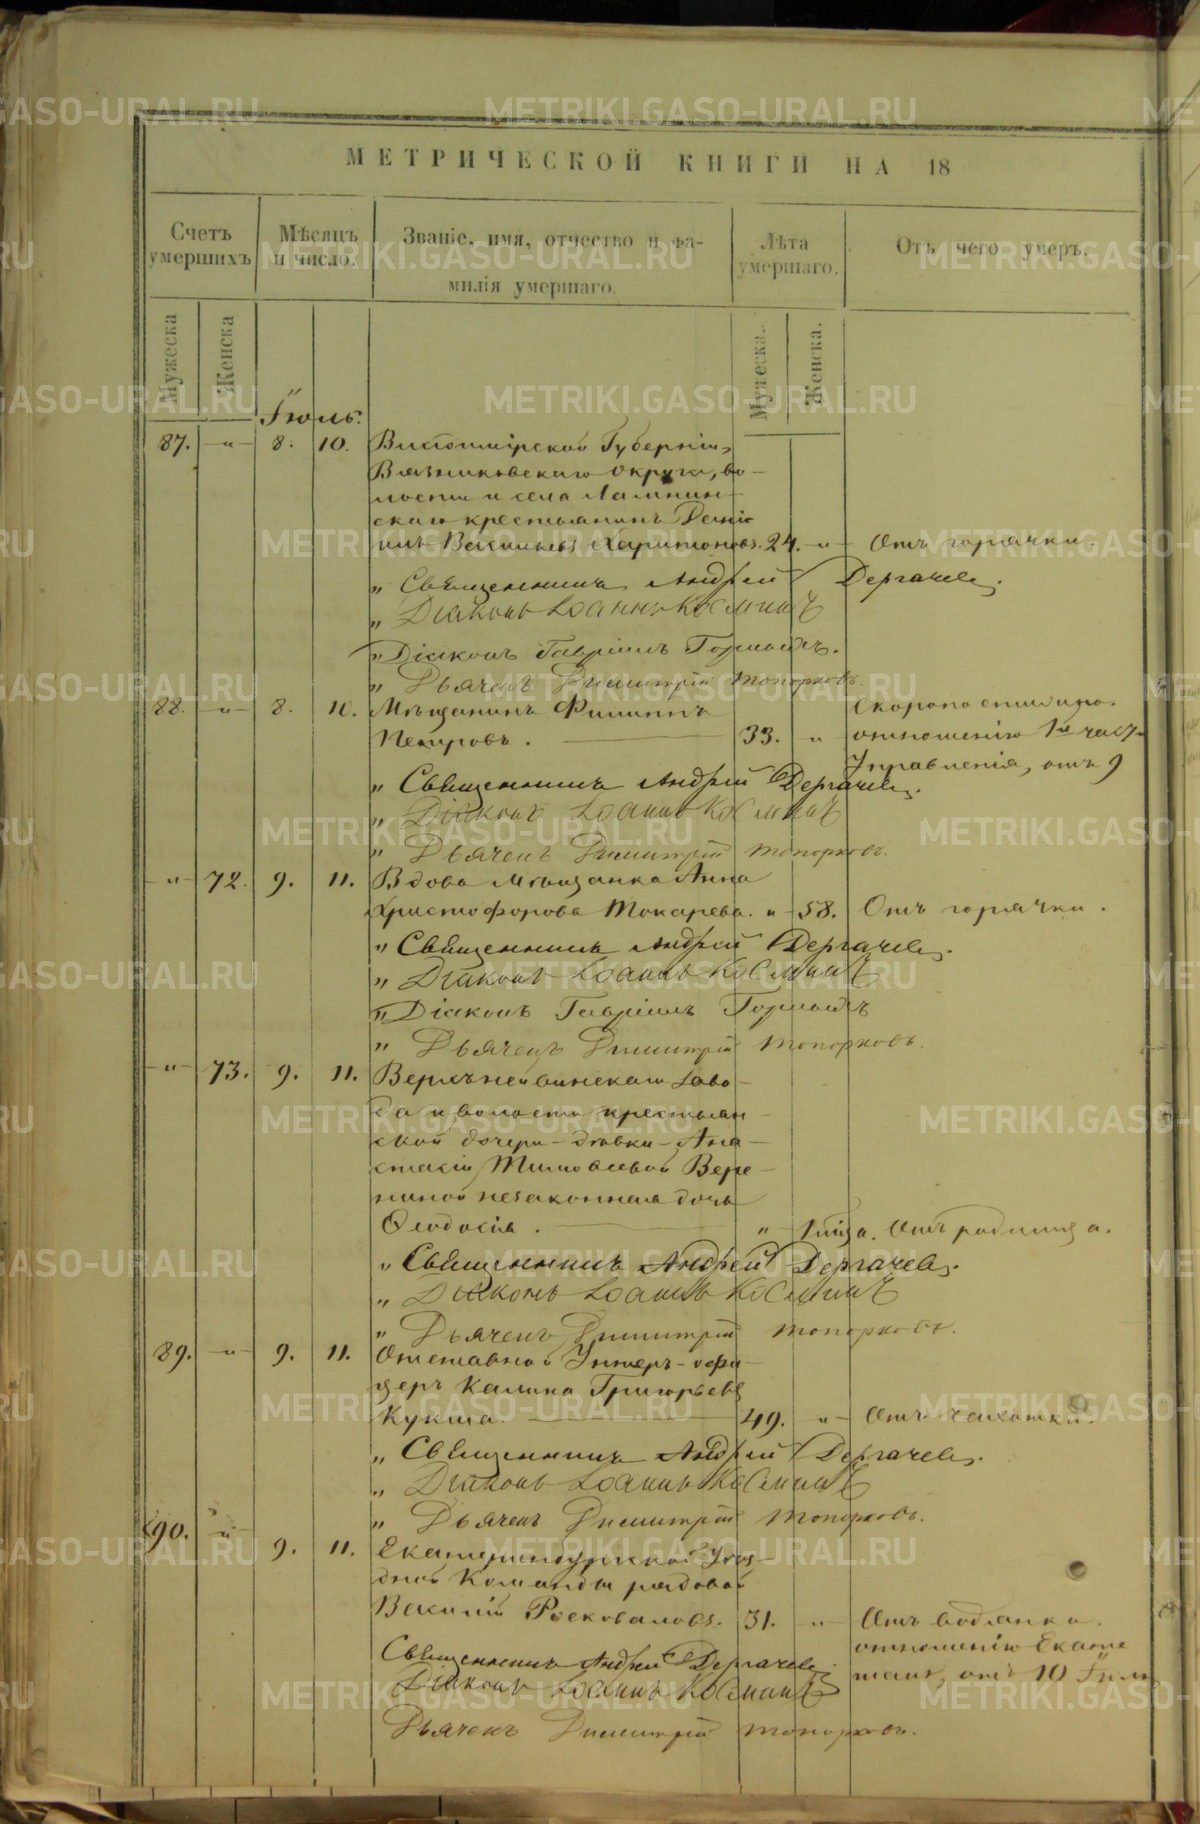 МЕТРИЧЕСКОЙ КНИГИ НА 18
Счетъ умершихъ
Мѣсяцъ и число.
Званіе, имя, отчество и фамилія умершаго.
Лѣта умершаго.
Отъ чего умеръ.
Мужеска
Женска
Мужеска.
Женска.
Іюль.
87. — „ — 8. 10. Владимірской Губерніи,
Вязниковскаго округа, во-
лости и села
скаго крестьянинъ
Васильевъ Харитоновъ. 24. „ Отъ горячки.
„ Священникъ Андрей Дергачевъ.
„ Діаконъ Іоаннъ Косминъ
„ Діаконъ Гавріилъ
„ Дьячекъ Димитрій Топорковъ.
88. — „ — 8. 10. Мѣщанинъ Филиппъ Скоропостижно
Петровъ. 33. „ отношенію 1й част.
Управленія, отъ 9
„ Священникъ Андрей Дергачевъ.
„ Діаконъ Іоаннъ Косминъ
„ Дьячекъ Димитрій Топорковъ.
— „ — 72. 9. 11. Вдова мѣщанка Анна
Христофорова Токарева. „ 58. Отъ горячки.
„ Священникъ Андрей Дергачевъ.
„ Діаконъ Іоаннъ Косминъ
„ Діаконъ Гавріилъ
„ Дьячекъ Димитрій Топорковъ.
— „ — 73. 9. 11. Верхънейвинскаго заво-
да и волости крестьян-
ской дочери - дѣвки - Ана-
стасіи Тимофеевой Вере-
ниной незаконная дочь
Ѳеодосія. „ Отъ родимца.
„ Священникъ Андрей Дергачевъ.
„ Діаконъ Іоаннъ Косминъ
„ Дьячекъ Димитрій Топорковъ.
89. — „ — 9. 11. Отставной Унтеръ-офи-
церъ Калина Григорьевъ
Кукша. 49. „ Отъ чахотки.
„ Священникъ Андрей Дергачевъ.
„ Діаконъ Іоаннъ Косминъ
„ Дьячекъ Димитрій Топорковъ.
90. — „ — 9. 11. Екатеринбургской Уѣз-
дной Команды рядовой
Василій Росковаловъ. 31. „ Отъ водянки.
отношенію Екате
отъ 10 Іюля
Священникъ Андрей Дергачевъ.
Діаконъ Іоаннъ Косминъ
Дьячекъ Димитрій Топорковъ.
METRIKI.GASO-URAL.RU